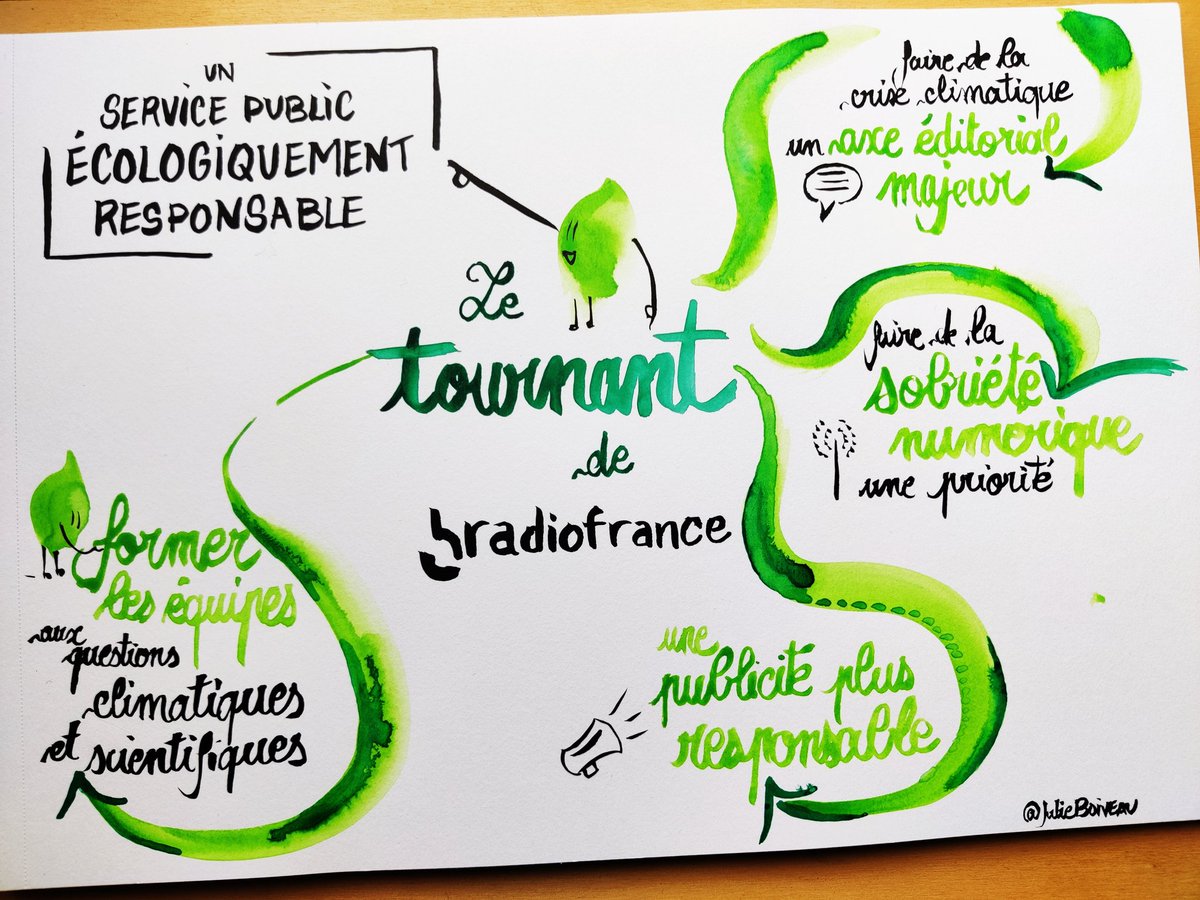 UN
SERVICE PUBLIC
ÉCOLOGIQUEMENT
RESPONSABLE
Le
tournant
de
radiofrance
faire de la
crise climatique
un axe éditorial
majeur
faire de la
sobriété
numérique
une priorité
une
publicité plus
responsable
former
les équipes
aux
questions
climatiques
et scientifiques
@JulieBoiveau